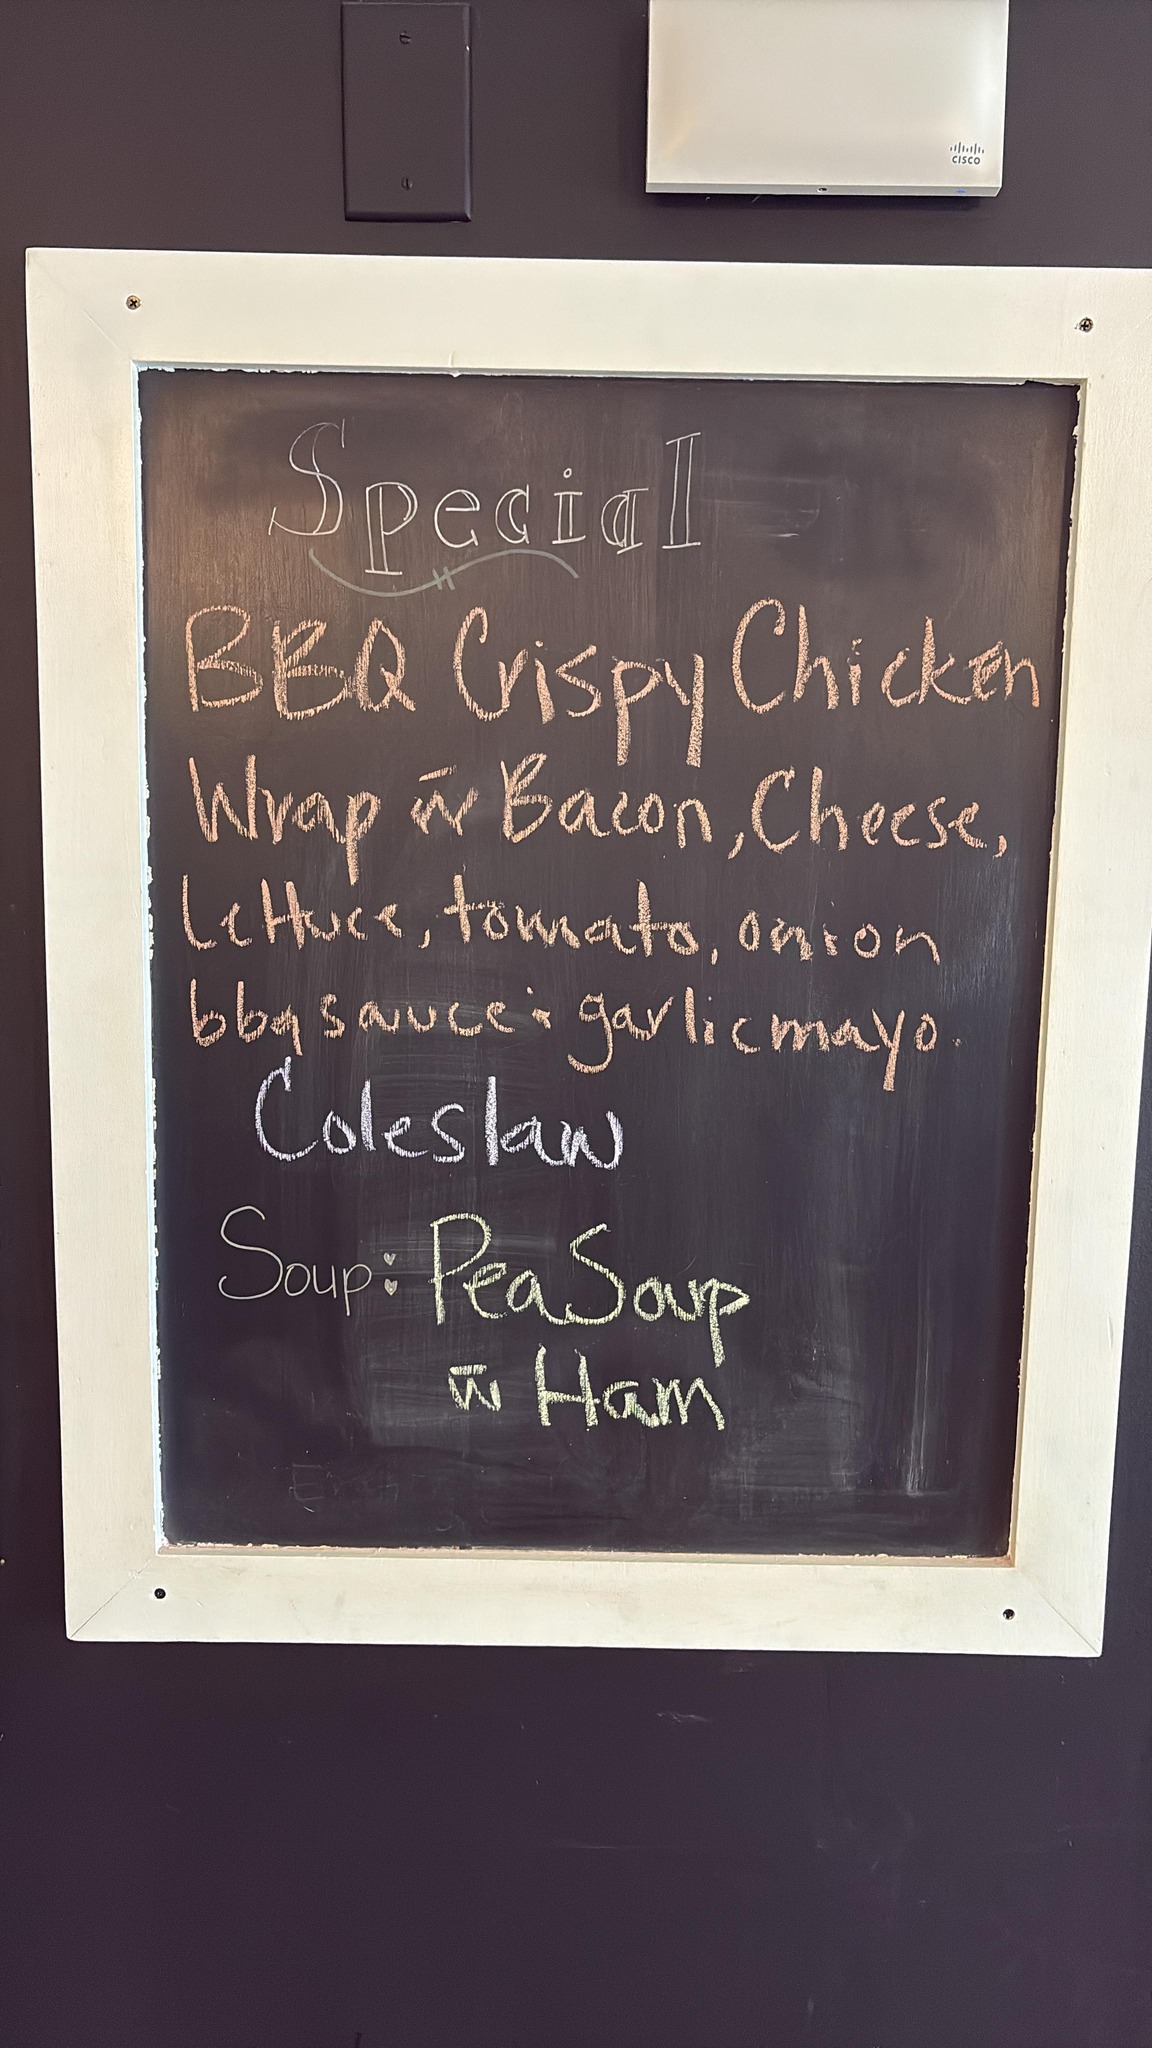 CISCO
Special
BBQ Crispy Chicken
Wrap w̄ Bacon, Cheese,
Lettuce, tomato, onion
bbq sauce + garlic mayo.
Coleslaw
Soup: Pea Soup
w̄ Ham